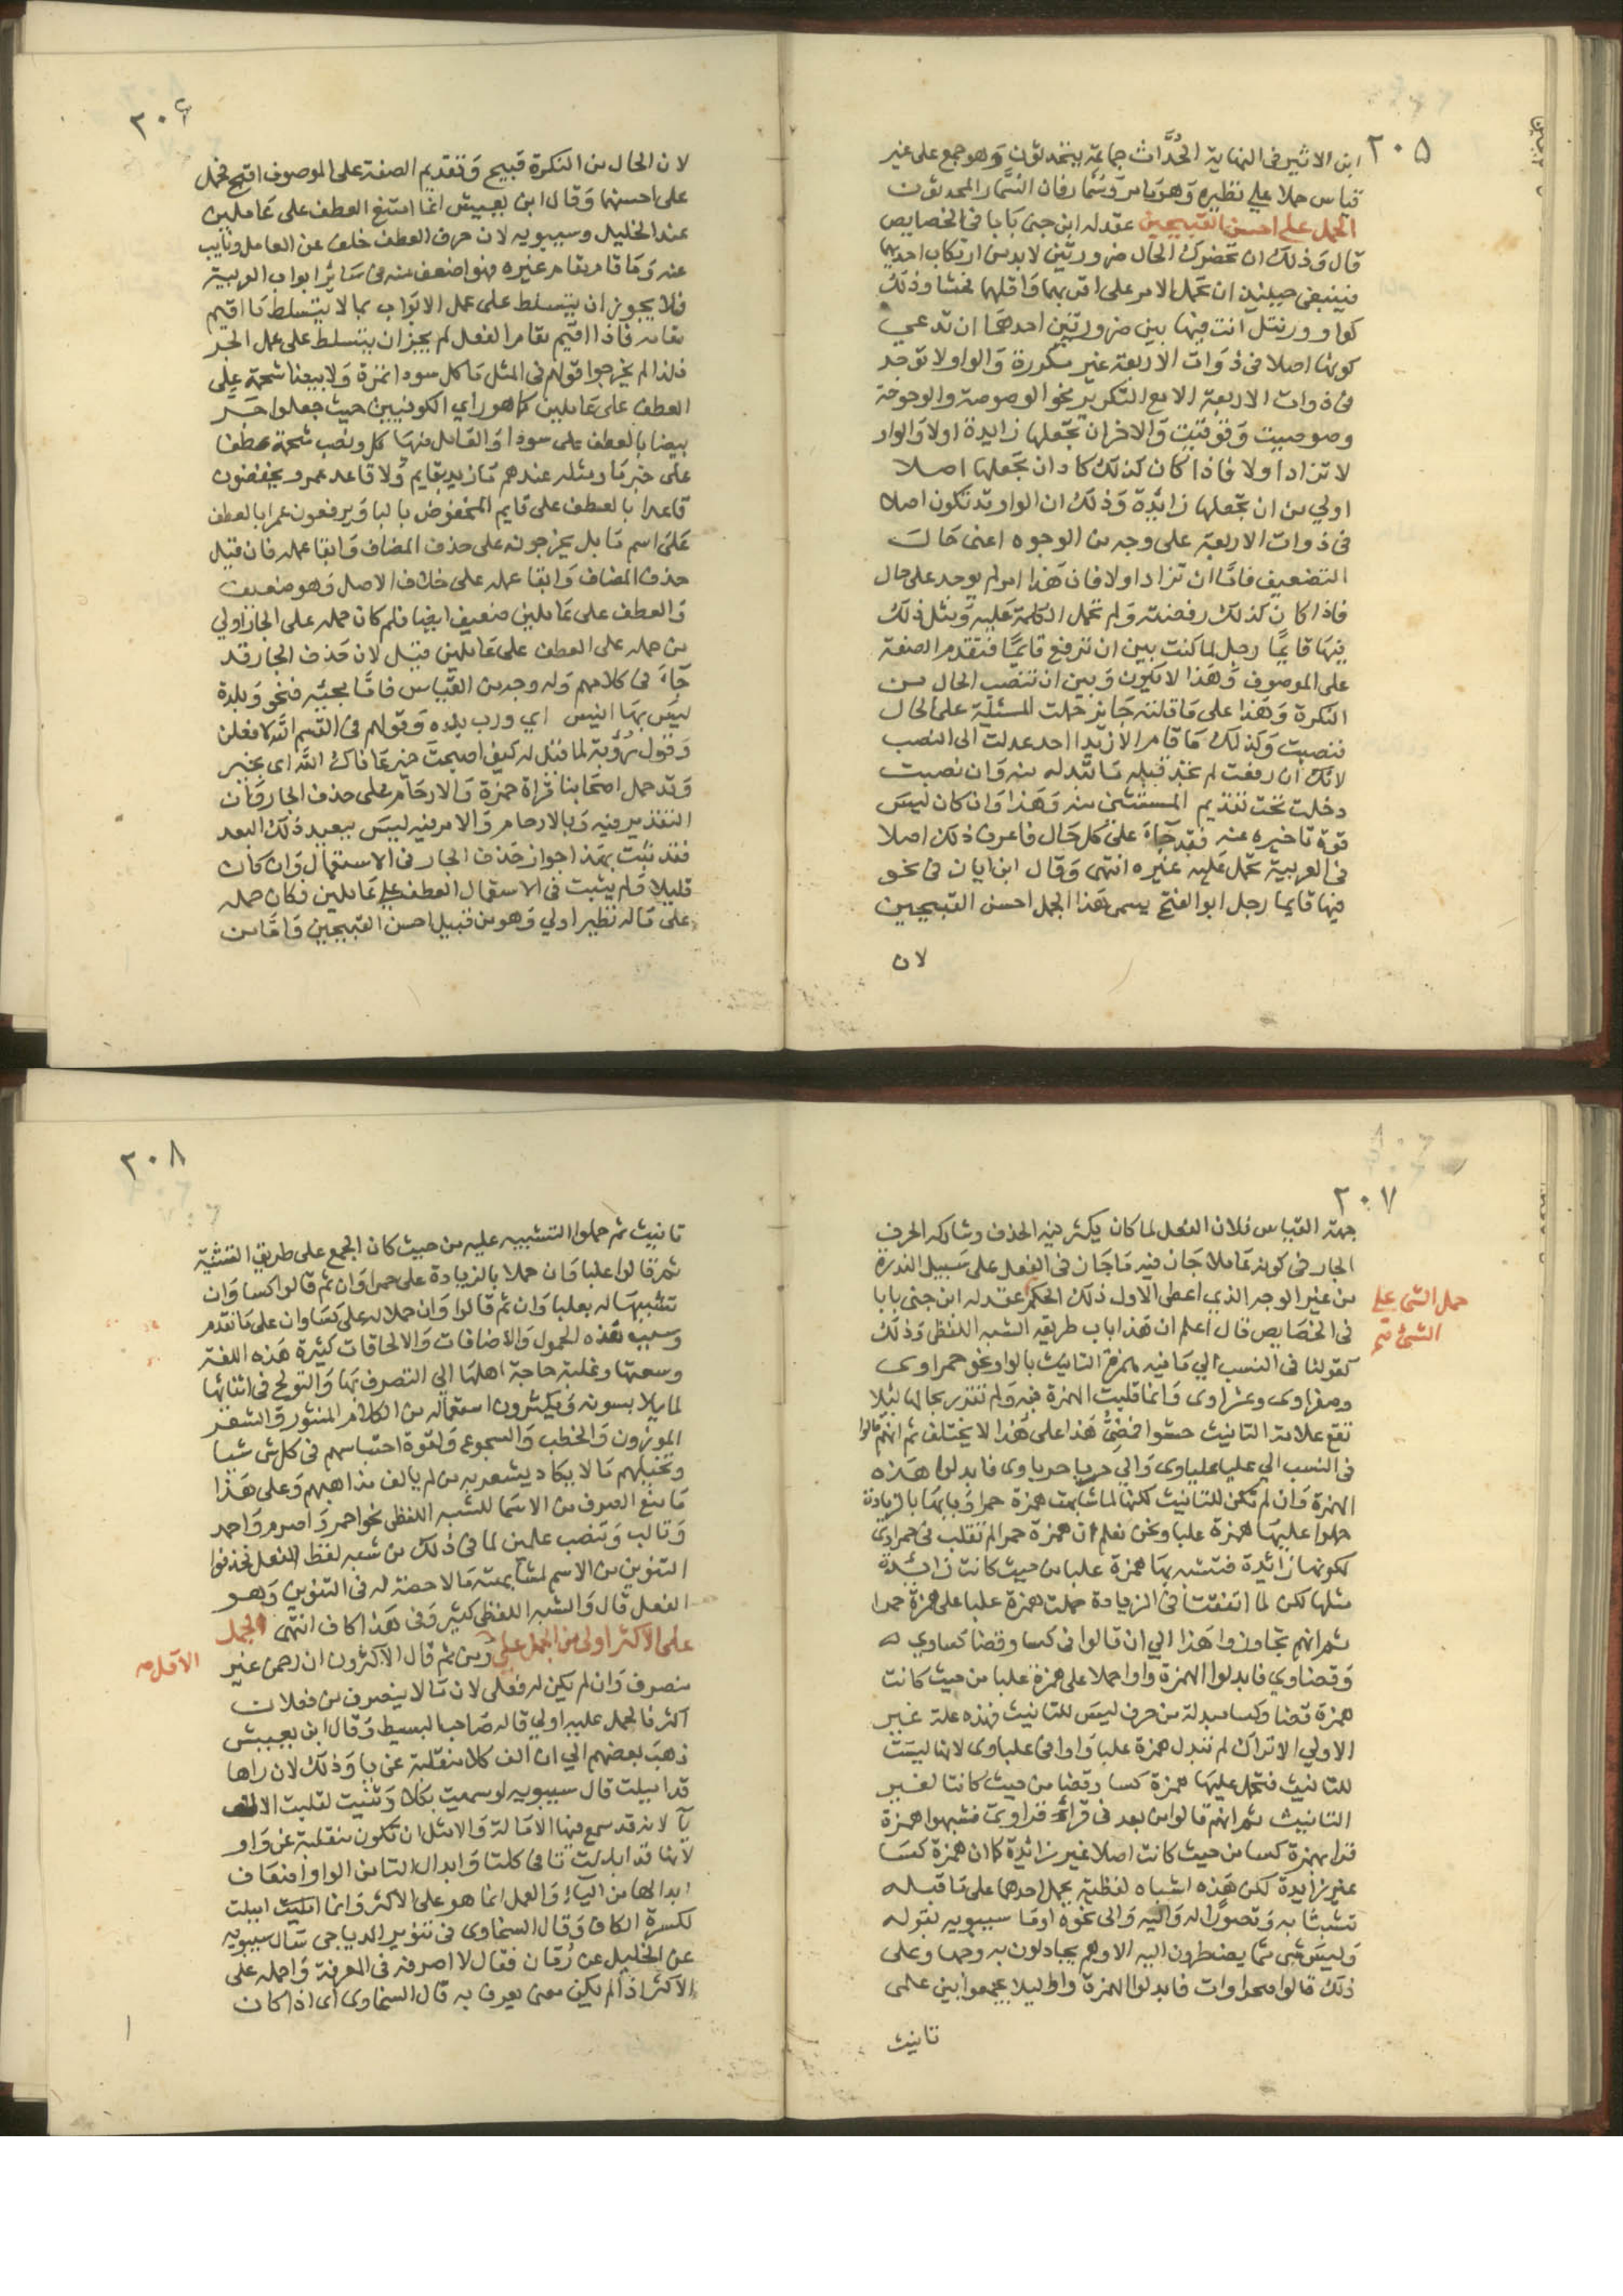 ٢٠٥
ابن الاثير في النهاية الحُدَّاث جماعة يتحدثون وهو جمع على غير
قياس حملا على نظيره وهو سامر وسُمّار فان السُّمّار المحدثون
الحمل على احسن القبيحين عقد له ابن جنى بابا في الخصايص
قال وذلك ان تحضرك الحال ضرورتين لا بد من ارتكاب احديهما
فينبغي حينئذ ان تحمل الامر على اقربهما واقلهما فحشا وذلك
كواو ورنتل انت فيها بين ضرورتين احدهما ان تدعي
كونها اصلا في ذوات الاربعة غير مكررة والواو لا توجد
في ذوات الاربعة الا مع التكرير نحو الوصوصة والوحوحة
وضوضيت وقوقيت والاخر ان تجعلها زايدة اولا والواو
لا تزاد اولا فاذا كان كذلك كان ان تجعلها اصلا
اولي من ان تجعلها زايدة وذلك ان الواو قد تكون اصلا
في ذوات الاربعة على وجه من الوجوه اعنى حالت
التضعيف فاما ان تزاد اولا فان هذا امر لم يوجد على حال
فاذا كان كذلك رفضته ولم تحمل الكلمة عليه ومثل ذلك
فيها قايمًا رجل لما كنت بين ان ترفع قايمًا فتقدم الصفة
على الموصوف وهذا لا يكون وبين ان تنصب الحال من
النكرة وهذا على ما قلته جايز حملت المسئلة على الحال
فنصبت وكذلك ما قام الا زيدا احد عدلت الى النصب
لانك ان رفعت لم تجد قبله ما تبدله منه وان نصبت
دخلت تحت تقديم المستثنى منه وهذا وان كان ليس
قوة تاخيره عنه فقد جاء على كل حال فاعرف ذلك اصلا
في العربية تحمل عليه غيره انتهى وقال ابن ايان في نحو
فيها قايما رجل ابو الفتح يسمى هذا الحمل احسن القبيحين
لان
٢٠٦
لان الحال من النكرة قبيح وتقديم الصفة على الموصوف اقبح فحمل
على احسنهما وقال ابن يعيش انما امتنع العطف على عاملين
عند الخليل وسيبويه لان حرف العطف خلف عن العامل ونايب
عنه وما قام مقام غيره فهو اضعف منه في سائر ابواب العربية
فلا يجوز ان يتسلط على عمل الابواب بما لا يتسلط ما اقيم
مقامه فاذا اقيم مقام الفعل لم يجز ان يتسلط على عمل الجر
فلذا لم يخرجوا قولهم في المثل ما كل سودا تمرة ولا بيضا شحمة على
العطف على عاملين كما هو راي الكوفيين حيث جعلوا جر
بيضا بالعطف على سودا والعامل فيها كل ونصب شحمة عطفا
على خبر ما ومثله عندهم ما زيد بقايم ولا قاعد عمرو يخفضون
قاعدا بالعطف على قايم المخفوض بالبا ويرفعون عمرا بالعطف
على اسم ما بل يخرجونه على حذف المضاف وابقا عمله فان قيل
حذف المضاف وابقا عمله على خلاف الاصل وهو ضعيف
والعطف على عاملين ضعيف ايضا فلم كان حمله على الجار اولي
من حمله على العطف على عاملين قيل لان حذف الجار قد
جاء في كلامهم وله وجه من القياس فاما مجيئه فنحو وبلدة
ليس بها انيس اي ورب بلده وقولهم في القسم الله لافعلن
وقول رؤبة لما قيل له كيف اصبحت خير عافاك الله اى بخير
وقد حمل اصحابنا قراة حمزة والارحام على حذف الجار وان
التقدير فيه وبالارحام والامر فيه ليس ببعيد ذلك البعد
فقد ثبت بهذا جواز حذف الجار في الاستعمال وان كان
قليلا ولم يثبت في الاستعمال العطف على عاملين فكان حمله
على ما له نظير اولي وهو من قبيل احسن القبيحين واما من
٢٠٧
جهة القياس فلان الفعل لما كان يكثر فيه الحذف وشاركه الحرف
الجار في كونه عاملا جاز فيه ما جاز في الفعل على سبيل الندرة
حمل الشي على
الشئ
من غير الوجه الذي اعطى الاول ذلك الحكم عقد له ابن جنى بابا
في الخصايص قال اعلم ان هذا باب طريقه الشبه اللفظي وذلك
كقولنا في النسب الي ما فيه همزة التانيث بالواو نحو حمراوى
وصفراوى وعشراوى وانما قلبت الهمزة فيه ولم تقر بحالها لئلا
تقع علامة التانيث حشوا فمضى هذا على هذا لا يختلف ثم انهم قالوا
في النسب الي علبا علباوى والي حربا حرباوى فابدلوا هذه
الهمزة وان لم تكن للتانيث لكنها لما شابهت همزة حمرا وبابها بالزيادة
حملوا عليها همزة علبا ونحن نعلم ان همزة حمرا لم تقلب في حمراوى
لكونها زائدة فتشبه بها همزة علبا من حيث كانت زائدة
مثلها لكن لما اتفقتا في الزيادة حملت همزة علبا على همزة حمرا
ثم انهم تجاوزوا هذا الي ان قالوا في كسا وقضا كساوي
وقضاوي فابدلوا الهمزة واوا حملا على همزة علبا من حيث كانت
همزة قضا وكسا مبدلة من حرف ليس للتانيث فهذه علة غير
الاولي الا تراك لم تبدل همزة علبا واوا في علباوى لانها ليست
للتانيث فتحمل عليها همزة كسا وقضا من حيث كانتا لغير
التانيث ثم انهم قالوا من بعد في قراء قراوى فشبهوا همزة
قرا بهمزة كسا من حيث كانت اصلا غير زائدة كما ان همزة كسا
غير زايدة لكن هذه اشباه لفظية يحمل احدها على ما قبله
تشبثا به وتصورا له واليه والى نحوه اوما سيبويه بقوله
وليس شى مما يضطرون اليه الا وهم يحاولون به وجها وعلى
ذلك قالوا صحراوات فابدلوا الهمزة واوا ليلا يجمعوا بين علمى
تانيث
٢٠٨
تانيث ثم حملوا التشبيه عليه من حيث كان الجمع على طريق التثنية
ثم قالوا علباوان حملا بالزيادة على حمراوان ثم قالوا كساوان
تشبيها له بعلباوان ثم قالوا وان حملا له على كساوان على ما تقدم
وسبب هذه الحمول والاضافات والالحاقات كثرة هذه اللغة
وسعتها وغلبة حاجة اهلها الي التصرف بها والتولج في اثنائها
لما يلابسونه ويكثرون استعماله من الكلام المنثور والشعر
الموزون والخطب والسجوع ولقوة احتباسهم في كل شي شيا
وتخيلهم ما لا يكاد يشعر به من لم يالف مذاهبهم وعلى هذا
ما منع الصرف من الاسما للشبه اللفظي نحو احمر واصرم واحمد
وتالب وتنضب علمين لما في ذلك من شبه لفظ الفعل فحذفوا
التنوين من الاسم لمشابهته ما لا حصة له في التنوين وهو
الفعل قال والشبه اللفظي كثير وفى هذا كاف انتهى الحمل
على الاكثر اولى من الحمل على ومن ثم قال الاكثرون ان رحمن غير
الاقل
منصرف وان لم يكن له فعلى لان ما لا ينصرف من فعلان
اكثر فالحمل عليه اولي قاله صاحب البسيط وقال ابن يعيش
ذهب بعضهم الي ان الف كلا منقلبة عن يا وذلك لان راها
قد اميلت قال سيبويه لو سميت بكلا وثنيت لقلبت الالف
يا لانه قد سمع فيها الامالة والامثل ان تكون منقلبة عن واو
لانها قد ابدلت تا في كلتا وابدال التا من الواو اضعاف
ابدالها من الياء والعمل انما هو على الاكثر وانما اميلت
لكسرة الكاف وقال السخاوى في تنوير الدياجي سال سيبويه
عن الخليل عن رمان فقال لا اصرفه في المعرفة واحمله على
الاكثر اذ لم يكن معنى يعرف به قال السخاوى اى اذا كان